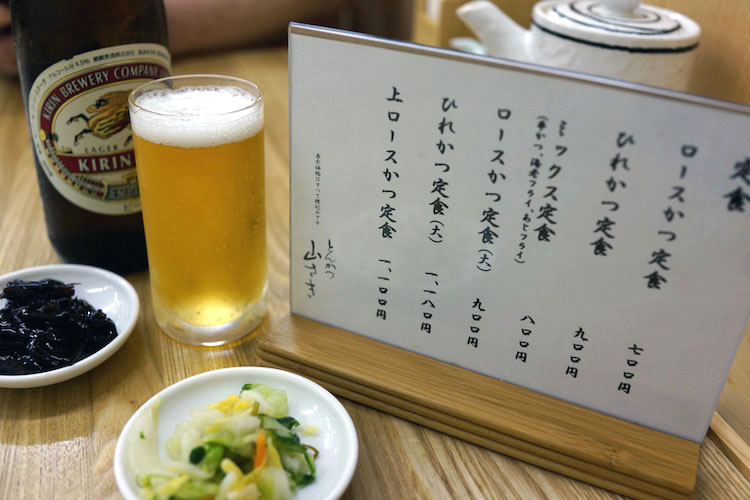 アルコール分4.5%
KIRIN BREWERY COMPANY
LAGER
KIRIN
定食
ロースかつ定食 七〇〇円
ひれかつ定食 九〇〇円
ミックス定食 八〇〇円
(串かつ、海老フライ、あじフライ)
ロースかつ定食(大) 九〇〇円
ひれかつ定食(大) 一、一八〇円
上ロースかつ定食 一、一〇〇円
表示価格はすべて税込みです
とんかつ
山さき